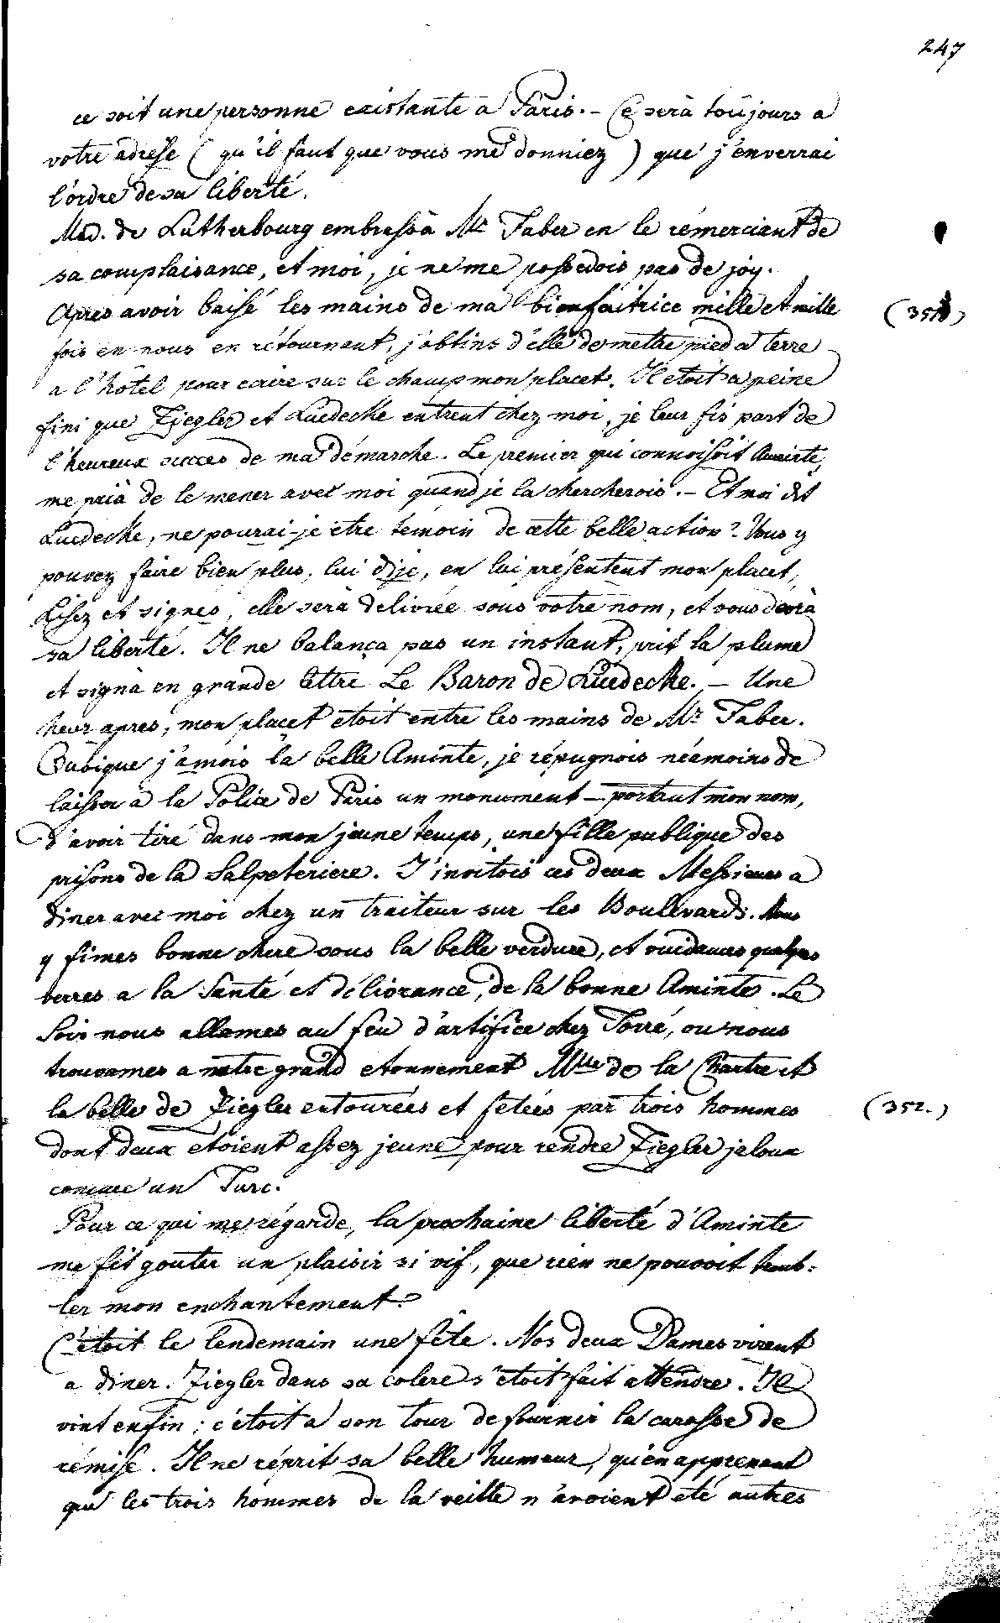 247
ce soit une personne existante a Paris. – Ce sera toujours a
votre adresse ( qu'il faut que vous me donniez ) que j'enverrai
l'ordre de sa liberté.
Mad. de Lutherbourg embrassà Mr Faber en le rémerciant de
sa complaisance, et moi, je ne me possedois pas de joy.
Apres avoir baisé les mains de ma bienfaitrice mille et mille
(351)
fois en nous en rétournant, j'obtins d'élle de mettre pied a terre
a l'hôtel pour ecrire sur le champ mon placet. Il etoit a peine
fini que Ziegler et Luedecke entrent chez moi, je leur fis part de
l'heureux succes de ma démarche. Le premier qui connoissoit Aminte,
me prià de le mener avec moi quand je la chercherois. – Et moi dit
Luedecke, ne pourai-je etre temoin de cette belle action? Vous y
pouvez faire bien plus, lui dije, en lui présentent mon placet,
Lisez et signés, elle serà delivrée sous votre nom, et vous devrà
sa liberté. Il ne balança pas un instant, prit la plume
et signà en grande lettre Le Baron de Luedecke. – Une
heur apres, mon placet etoit entre les mains de Mr Faber.
Quoique j'amois la belle Aminte, je répugnois néamoins de
laisser a la Police de Paris un monument – portant mon nom,
d'avoir tiré dans mon jeune temps, une fille publique des
prisons de la Salpeteriere. J'invitois ces deux Messieurs a
diner avec moi chez un traiteur sur les Boulevards. Nous
y fimes bonne chere sous la belle verdure, et vuidames quelques
verres a la Santé et délivrance, de la bonne Aminte. Le
Soir nous allames au feu d'artifice chez Torré, ou nous
trouvames a notre grand etonnement Mlle de la Chartre et
la belle de Ziegler entourées et fetées par trois hommes
(352.)
dont deux etoient assez jeune pour rendre Ziegler jaloux
comme un Turc.
Pour ce qui me régarde, la prochaine liberté d'Aminte
me fit gouter un plaisir si vif, que rien ne pouvoit troub-
ler mon enchantement.
C'étoit le lendemain une fête. Nos deux Dames virent
a diner. Ziegler dans sa colere s'etoit fait attendre. Il
vint enfin; c'étoit a son tour de fournir la carosse de
rémise. Il ne réprit sa belle humeur, qu'en apprenant
que les trois hommes de la veille n'avoient eté autres